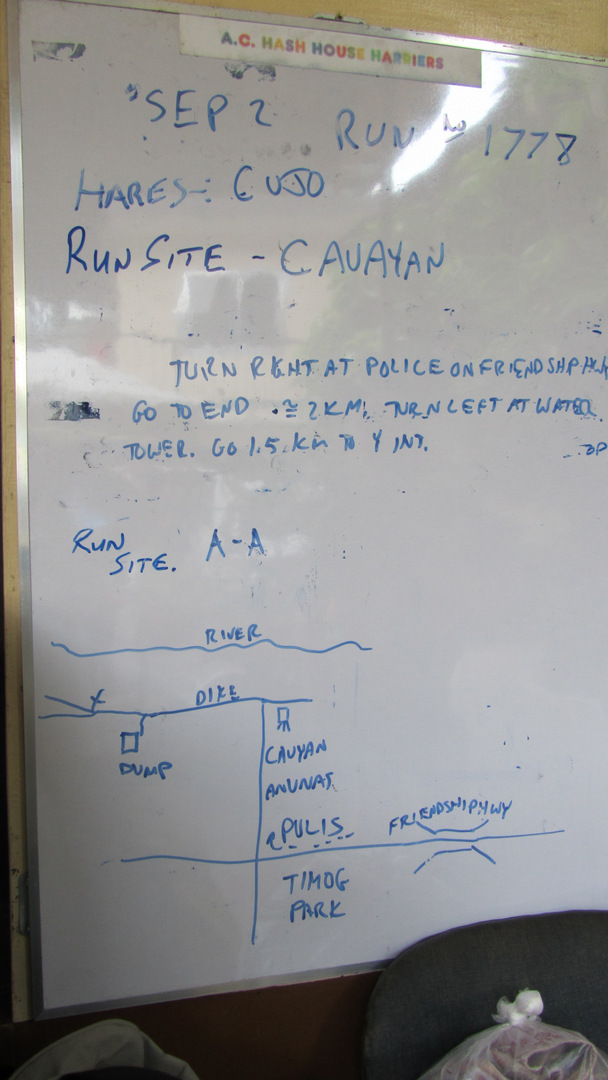 A.C. HASH HOUSE HARRIERS
SEP 2 RUN No 1778
HARES - CUJO
RUN SITE - CAUAYAN
TURN RIGHT AT POLICE ON FRIENDSHIP HWY
GO TO END ≅ 2 KM, TURN LEFT AT WATER
TOWER. GO 1.5 Km TO Y INT.
RUN SITE. A-A
RIVER
X
DIKE
DUMP
CAUYAN
ANUNAS
PULIS
FRIENDSHIP HWY
TIMOG
PARK